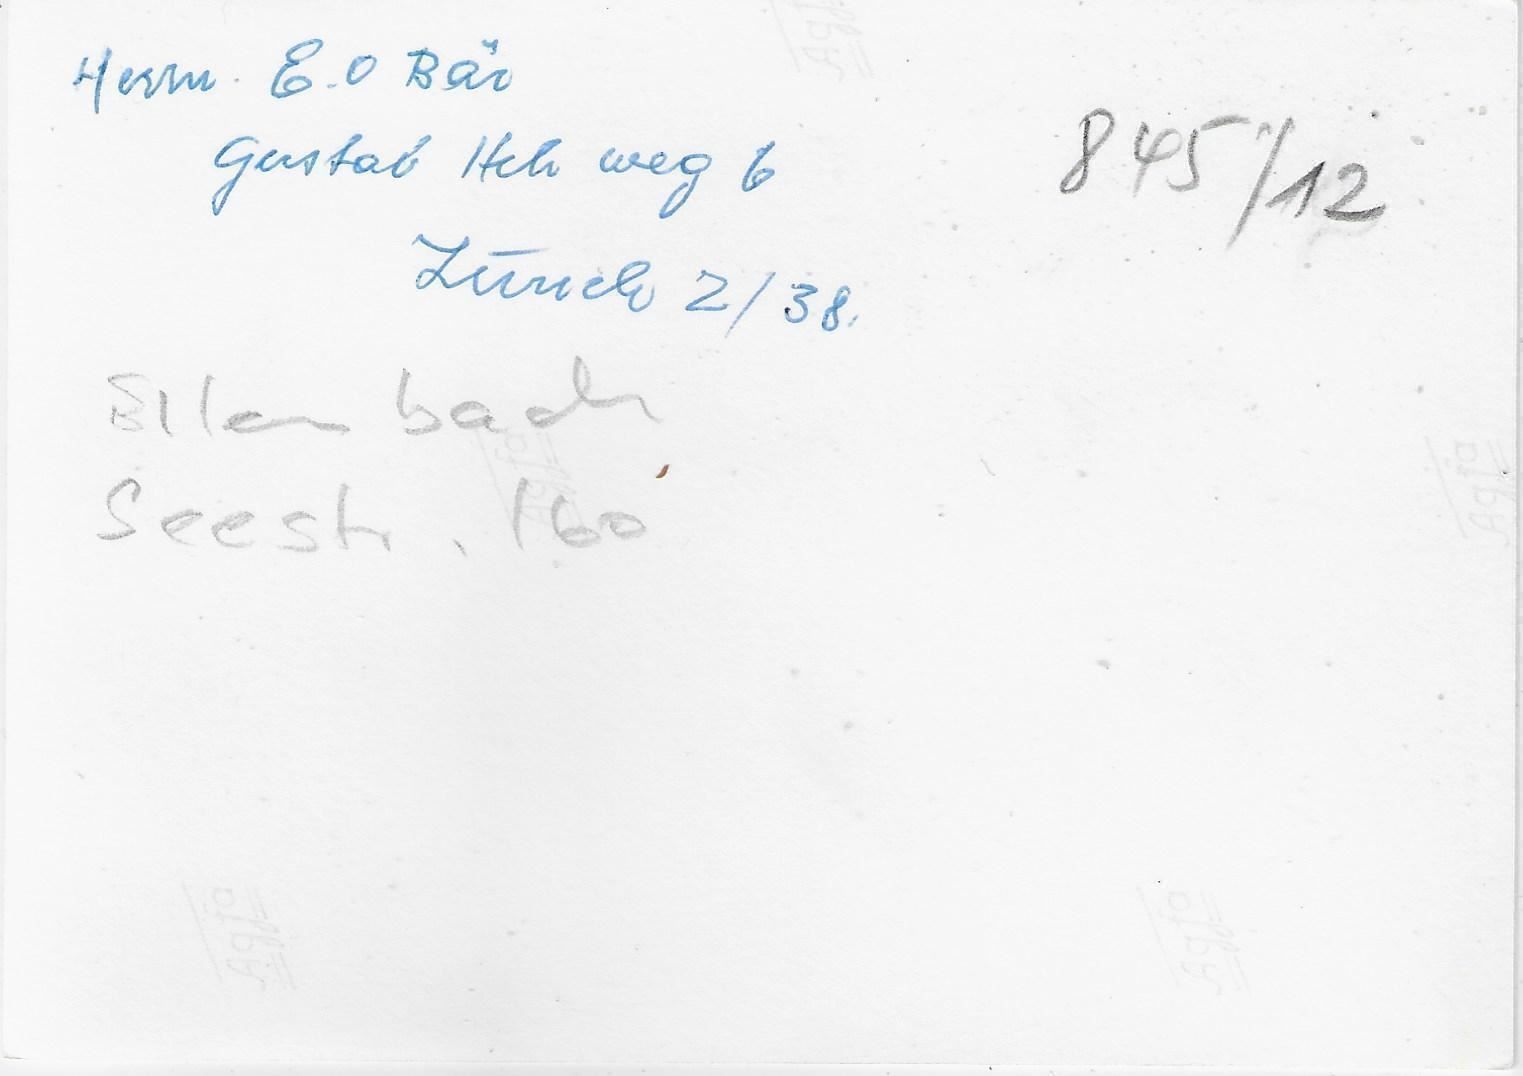 Herrn. E.O Bär
Gustav Hch weg 6
Zürich 2/38.
845/12
Erlenbach
Seestr. 160
Agfa
Agfa
Agfa
Agfa
Agfa